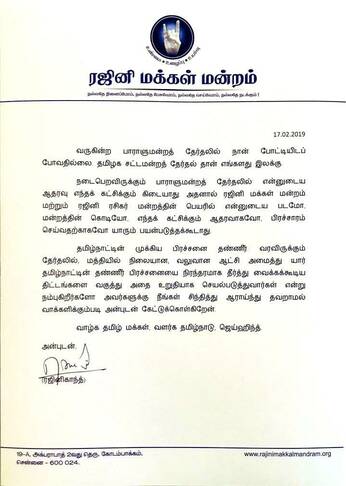 உண்மை உழைப்பு உயர்வு
ரஜினி மக்கள் மன்றம்
நல்லதே நினைப்போம், நல்லதே பேசுவோம், நல்லதே செய்வோம், நல்லதே நடக்கும் !
17.02.2019
வருகின்ற பாராளுமன்றத் தேர்தலில் நான் போட்டியிடப்
போவதில்லை. தமிழக சட்டமன்றத் தேர்தல் தான் எங்களது இலக்கு.
நடைபெறவிருக்கும் பாராளுமன்றத் தேர்தலில் என்னுடைய
ஆதரவு எந்தக் கட்சிக்கும் கிடையாது அதனால் ரஜினி மக்கள் மன்றம்
மற்றும் ரஜினி ரசிகர் மன்றத்தின் பெயரில் என்னுடைய படமோ,
மன்றத்தின் கொடியோ, எந்தக் கட்சிக்கும் ஆதரவாகவோ, பிரச்சாரம்
செய்வதற்காகவோ யாரும் பயன்படுத்தக்கூடாது.
தமிழ்நாட்டின் முக்கிய பிரச்சனை தண்ணீர். வரவிருக்கும்
தேர்தலில், மத்தியில் நிலையான, வலுவான ஆட்சி அமைத்து யார்
தமிழ்நாட்டின் தண்ணீர் பிரச்சனையை நிரந்தரமாக தீர்த்து வைக்கக்கூடிய
திட்டங்களை வகுத்து அதை உறுதியாக செயல்படுத்துவார்கள் என்று
நம்புகிறீர்களோ அவர்களுக்கு நீங்கள் சிந்தித்து ஆராய்ந்து தவறாமல்
வாக்களிக்கும்படி அன்புடன் கேட்டுக்கொள்கிறேன்.
வாழ்க தமிழ் மக்கள், வளர்க தமிழ்நாடு, ஜெய்ஹிந்த்.
அன்புடன்,
(ரஜினிகாந்த்)
19-A, அக்பராபாத் 2வது தெரு, கோடம்பாக்கம்,
சென்னை - 600 024.
www.rajinimakkalmandram.org